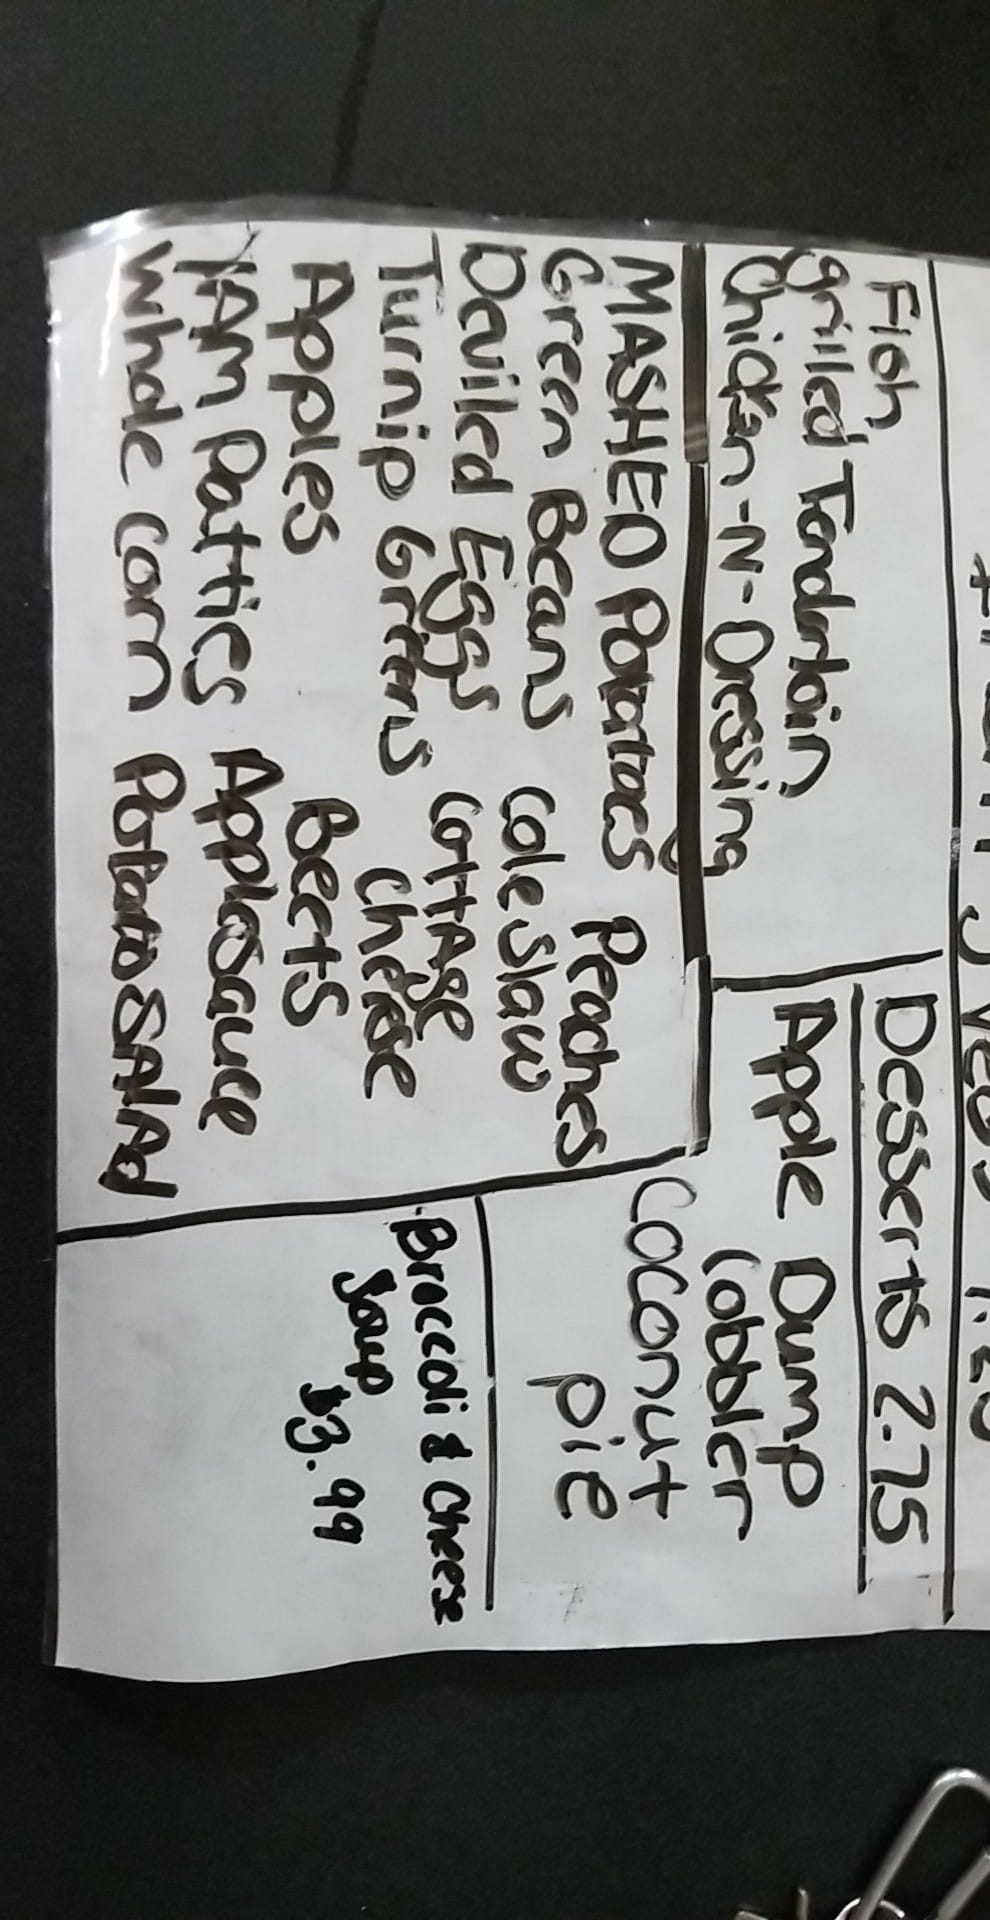 Veg's 1.25
Fish
grilled Tenderloin
Chicken-N-Dressing
Desserts 2.75
Apple Dump
Cobbler
Coconut
pie
MASHED Potatoes
Green Beans
Deviled Eggs
Turnip Greens
Apples
YAM Patties
Whole Corn
Peaches
Cole Slaw
CottAge
Cheese
Beets
Applesauce
Potato SALAd
Broccoli & Cheese
Soup
$3.99